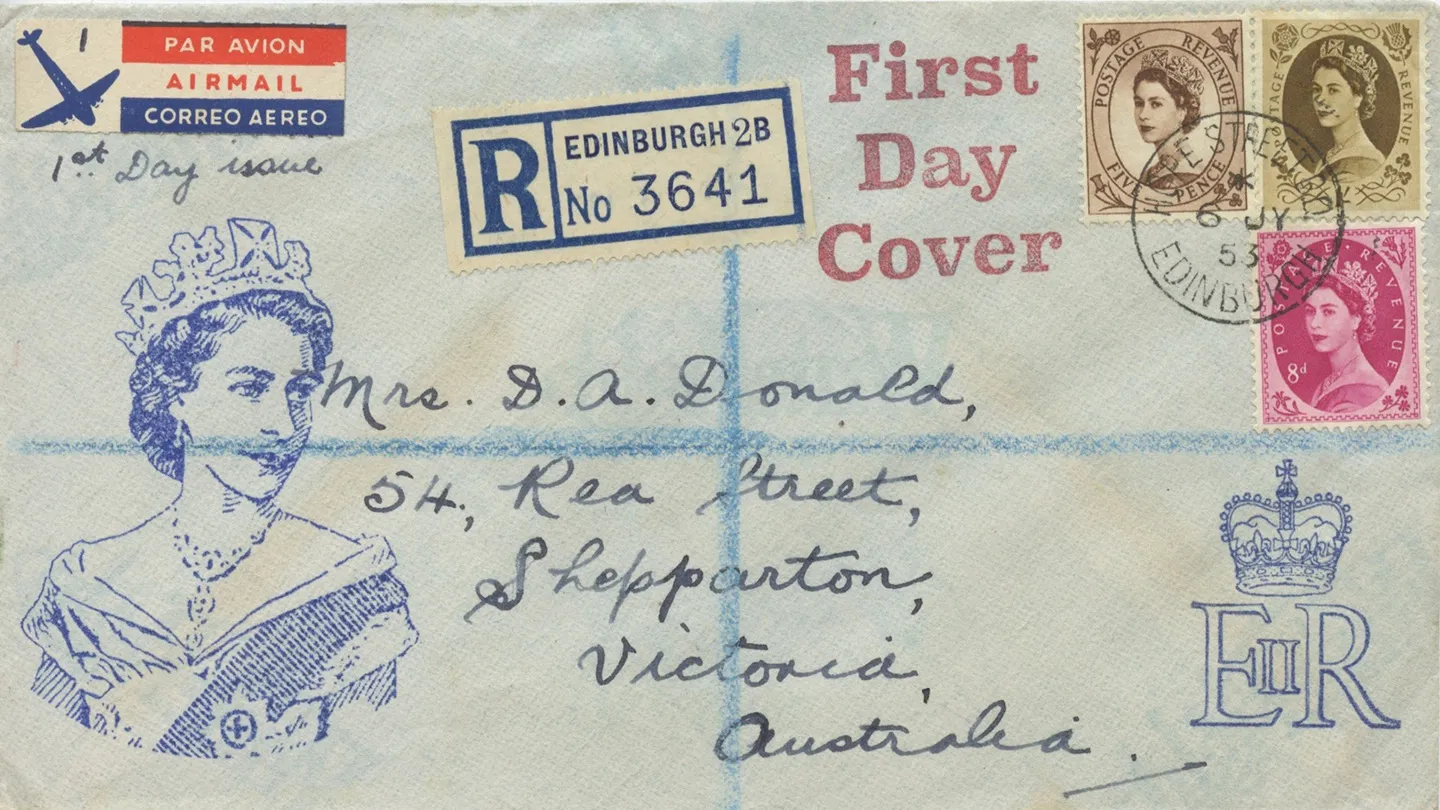 1
PAR AVION
AIRMAIL
CORREO AEREO
1st Day issue
R
EDINBURGH 2B
No 3641
First
Day
Cover
POSTAGE REVENUE
FIVE PENCE
POSTAGE REVENUE
HOPE STREET
6 JY
53
EDINBURGH
POSTAGE REVENUE
8d
Mrs. D. A. Donald,
54, Rea Street,
Shepparton,
Victoria,
Australia.
EIIR